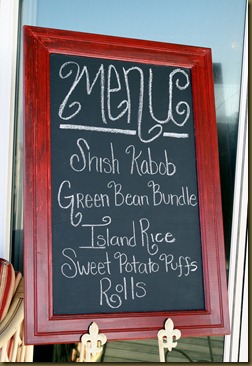 Menu
Shish Kabob
Green Bean Bundle
Island Rice
Sweet Potato Puffs
Rolls